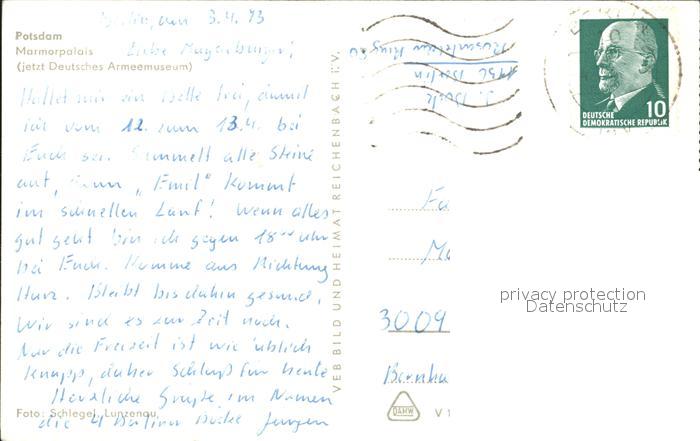 Berlin, den 3.4.73
Potsdam
Marmorpalais
(jetzt Deutsches Armeemuseum)
Liebe Magdeburger!
Haltet mir ein Bette frei, damit
ich vom 12. zum 13.4. bei
Euch sei. Sammelt alle Steine
auf, denn „Emil" kommt
im schnellen Lauf! Wenn alles
gut geht bin ich gegen 18⁰⁰ Uhr
bei Euch. Komme aus Richtung
Harz. Bleibt bis dahin gesund,
wir sind es zur Zeit noch.
Nur die Freizeit ist wie üblich
knapp, daher Schluß für heute
Herzliche Grüße im Namen
die 4 Berliner
Foto: Schlegel, Lunzenau
VEB BILD UND HEIMAT REICHENBACH I. V.
Berlin
10
DEUTSCHE
DEMOKRATISCHE REPUBLIK
Fa
3009
DAMW
V 1
privacy protection
Datenschutz